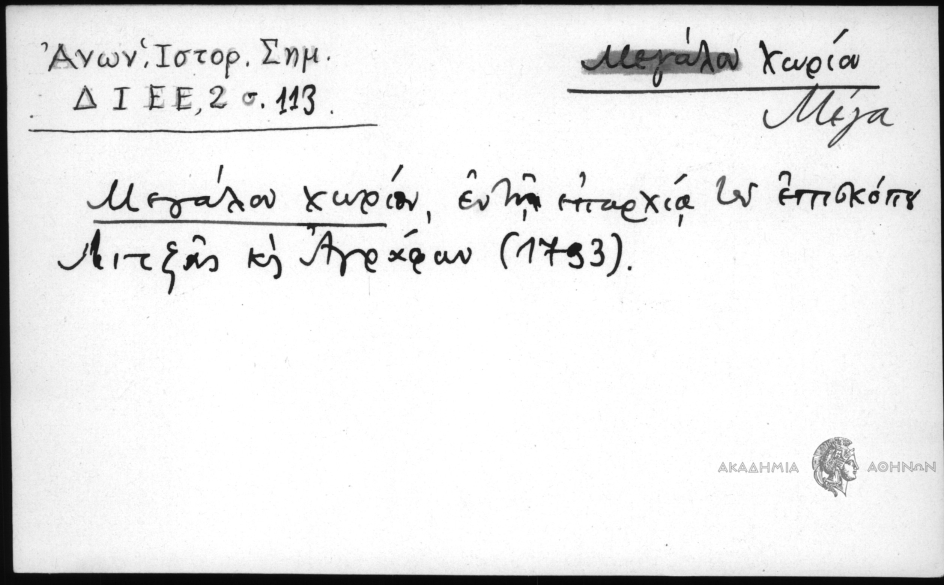 Ἀνων. Ἱστορ. Σημ.
ΔΙΕΕ, 2 σ. 113.
Μεγάλου Χωρίου
Μέγα
Μεγάλου χωρίου, ἐν τῇ ἐπαρχίᾳ τοῦ ἐπισκόπου
Λιτζᾶς κὴ Ἀγράφων (1793).
ΑΚΑΔΗΜΙΑ ΑΘΗΝΩΝ